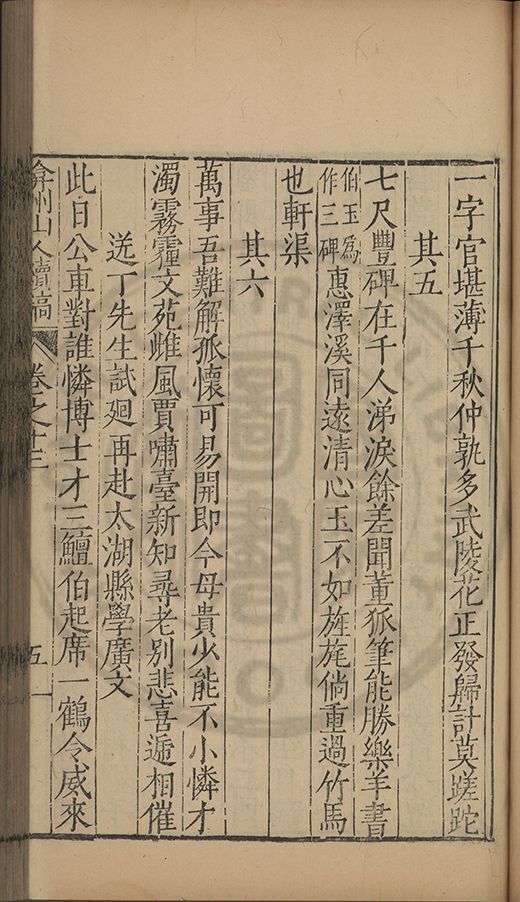 一字官堪薄千秋仲孰多武陵花正發歸計莫蹉跎
其五
七尺豐碑在千人涕淚餘差聞董狐筆能勝樂羊書
伯玉爲
作三碑
惠澤溪同遠清心玉不如旌旄倘重過竹馬
也軒渠
其六
萬事吾難解孤懷可易開即今母貴少能不小憐才
濁霧霾文苑雌風賈嘯臺新知尋老別悲喜遞相催
送丁先生試廻再赴太湖縣學廣文
此日公車對誰憐博士才三鱣伯起席一鶴令威來
弇州山人續稿
卷之十三
五